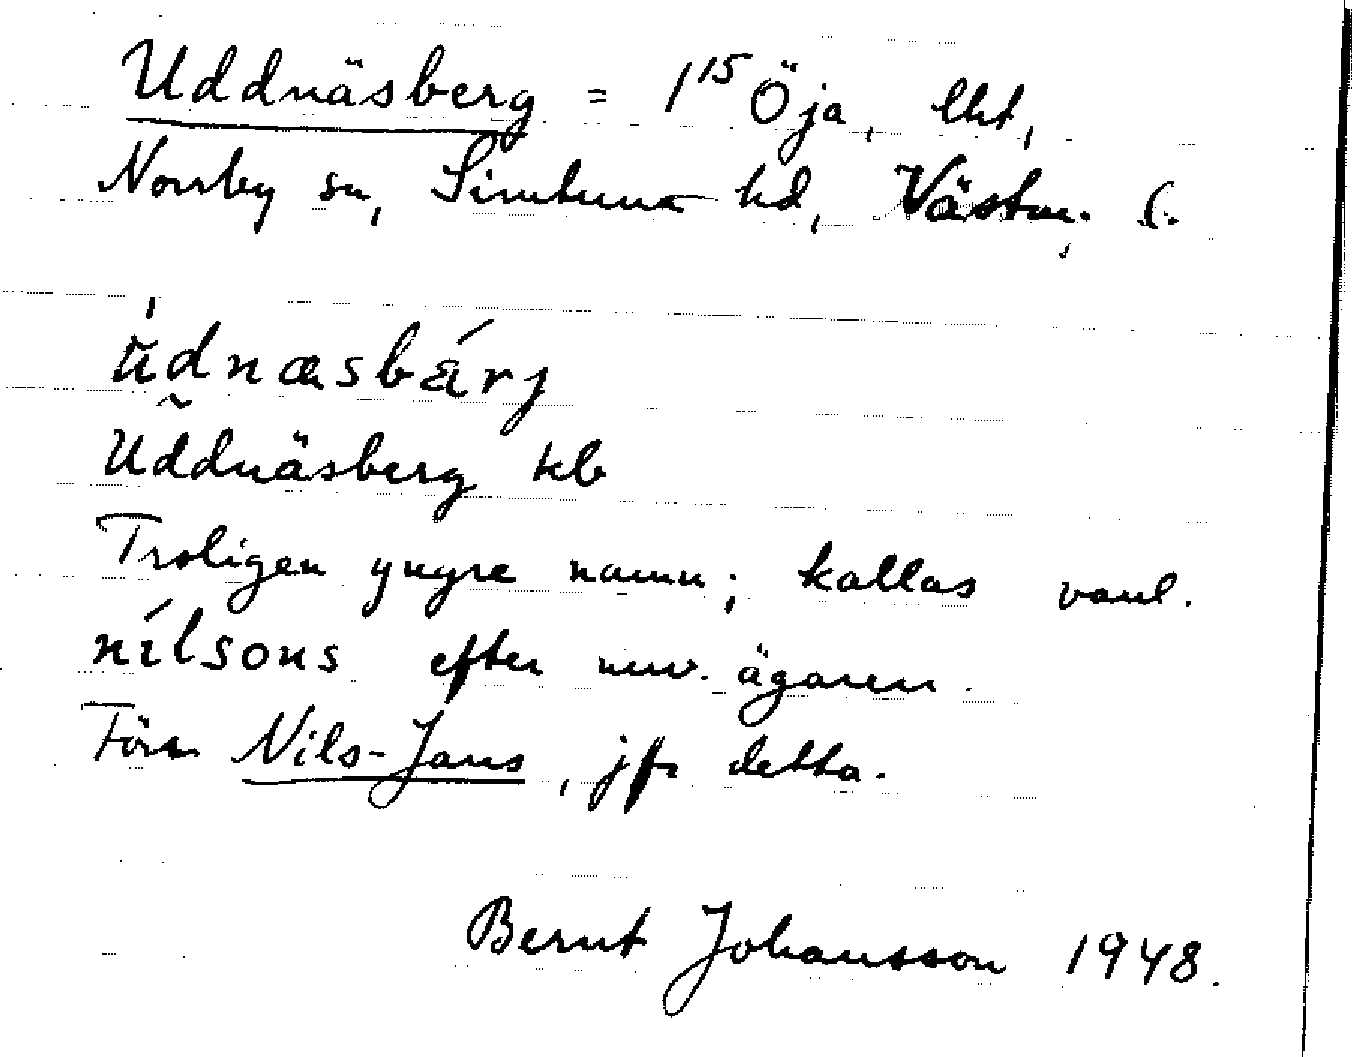 Uddnäsberg = 1¹⁵ Öja, lht,
Norrby sn, Simtuna hd, Västm. l.
ùdnæsbárj
Uddnäsberg kb
Troligen yngre namn; kallas vanl.
nílsons efter nuv. ägaren.
Förr Nils-Jans, jfr detta.
Bernt Johansson 1948.